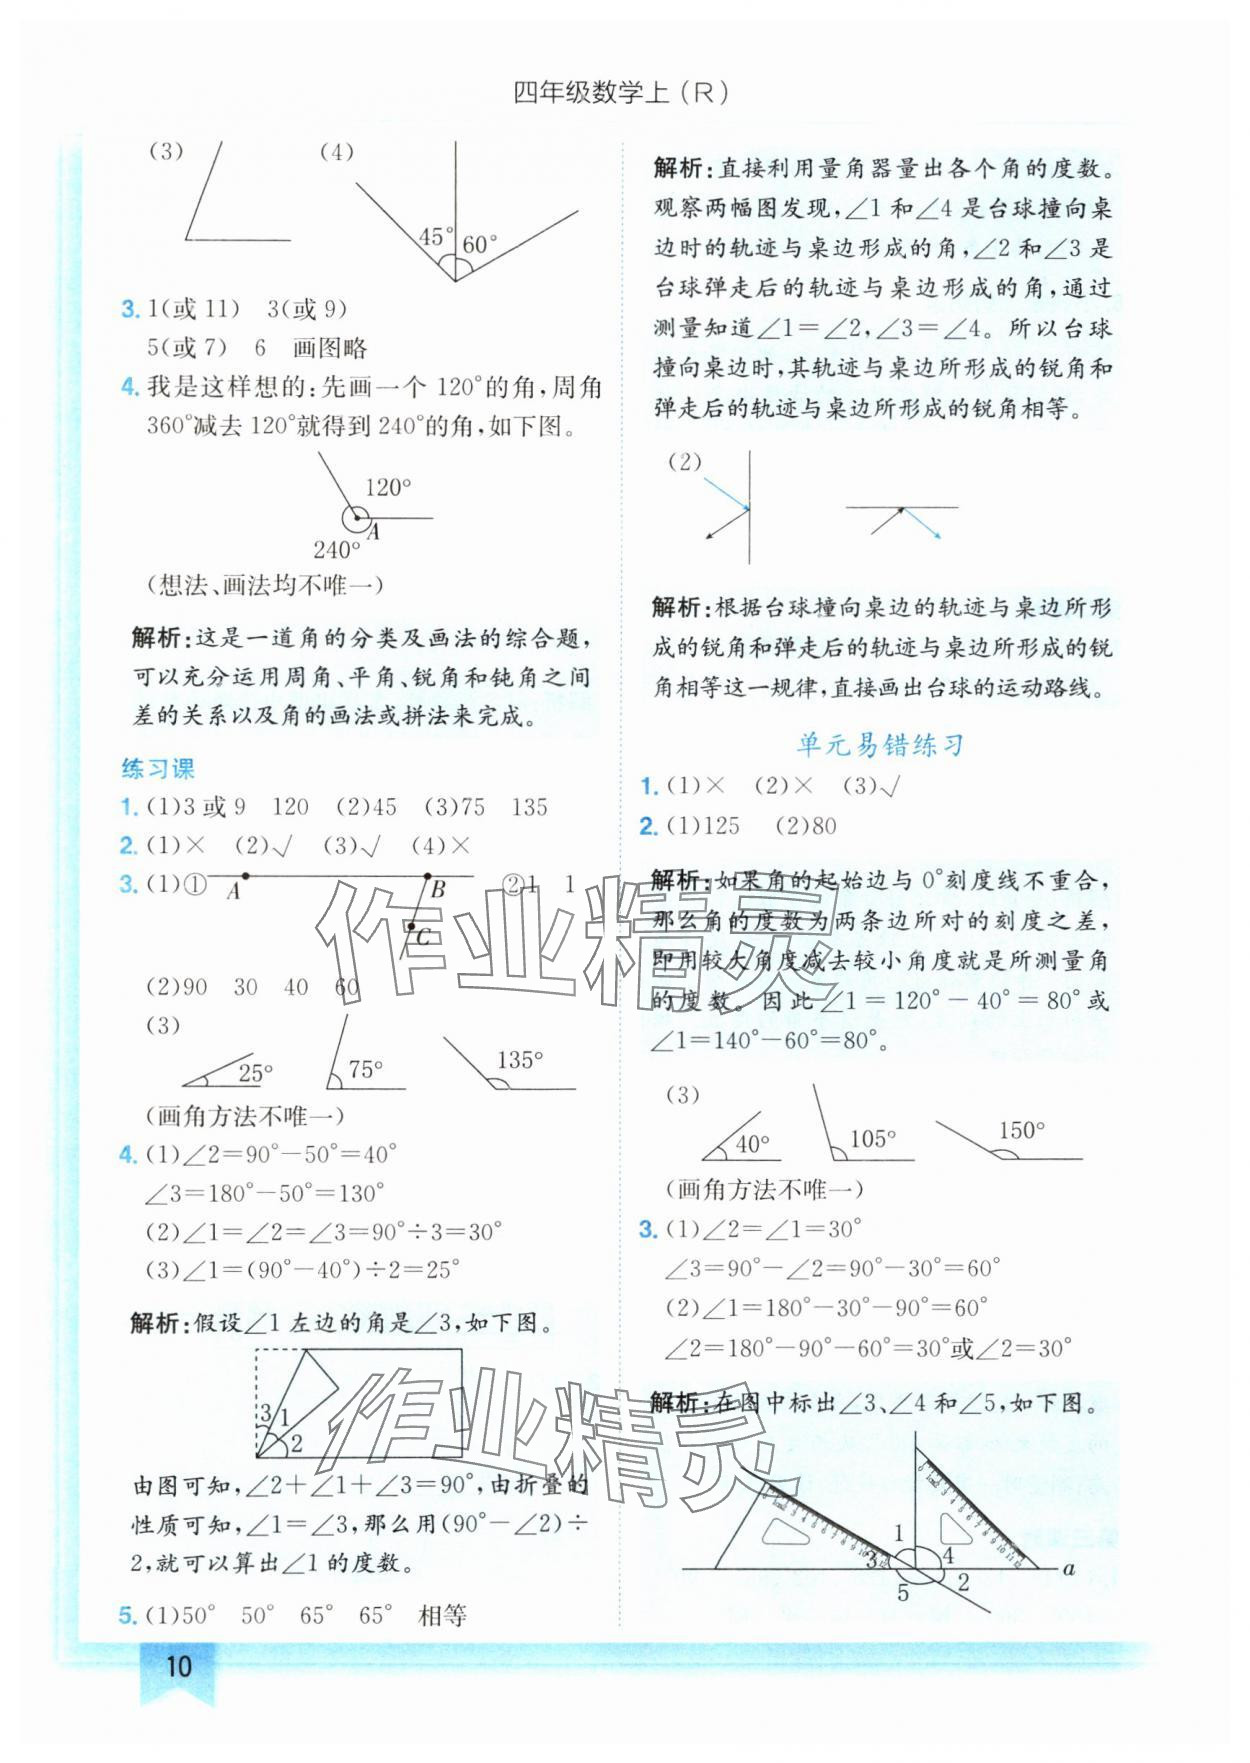 四年级数学上(R)
(3)
(4)
45°
60°
3. 1(或11) 3(或9)
5(或7) 6 画图略
4. 我是这样想的:先画一个120°的角,周角
360°减去120°就得到240°的角,如下图。
120°
A
240°
(想法、画法均不唯一)
解析:这是一道角的分类及画法的综合题,
可以充分运用周角、平角、锐角和钝角之间
差的关系以及角的画法或拼法来完成。
练习课
1. (1)3或9 120 (2)45 (3)75 135
2. (1)× (2)√ (3)√ (4)×
3. (1)① A B C ②1 1
(2)90 30 40 60
(3)
25° 75° 135°
(画角方法不唯一)
4. (1)∠2=90°-50°=40°
∠3=180°-50°=130°
(2)∠1=∠2=∠3=90°÷3=30°
(3)∠1=(90°-40°)÷2=25°
解析:假设∠1左边的角是∠3,如下图。
3 1 2
由图可知,∠2+∠1+∠3=90°,由折叠的
性质可知,∠1=∠3,那么用(90°-∠2)÷
2,就可以算出∠1的度数。
5. (1)50° 50° 65° 65° 相等
10
解析:直接利用量角器量出各个角的度数。
观察两幅图发现,∠1和∠4是台球撞向桌
边时的轨迹与桌边形成的角,∠2和∠3是
台球弹走后的轨迹与桌边形成的角,通过
测量知道∠1=∠2,∠3=∠4。所以台球
撞向桌边时,其轨迹与桌边所形成的锐角和
弹走后的轨迹与桌边所形成的锐角相等。
(2)
解析:根据台球撞向桌边的轨迹与桌边所形
成的锐角和弹走后的轨迹与桌边所形成的锐
角相等这一规律,直接画出台球的运动路线。
单元易错练习
1. (1)× (2)× (3)√
2. (1)125 (2)80
解析:如果角的起始边与0°刻度线不重合,
那么角的度数为两条边所对的刻度之差,
即用较大角度减去较小角度就是所测量角
的度数。因此∠1=120°-40°=80°或
∠1=140°-60°=80°。
(3)
40° 105° 150°
(画角方法不唯一)
3. (1)∠2=∠1=30°
∠3=90°-∠2=90°-30°=60°
(2)∠1=180°-30°-90°=60°
∠2=180°-90°-60°=30°或∠2=30°
解析:在图中标出∠3、∠4和∠5,如下图。
1
3 4
5 2
a
作业精灵
作业精灵